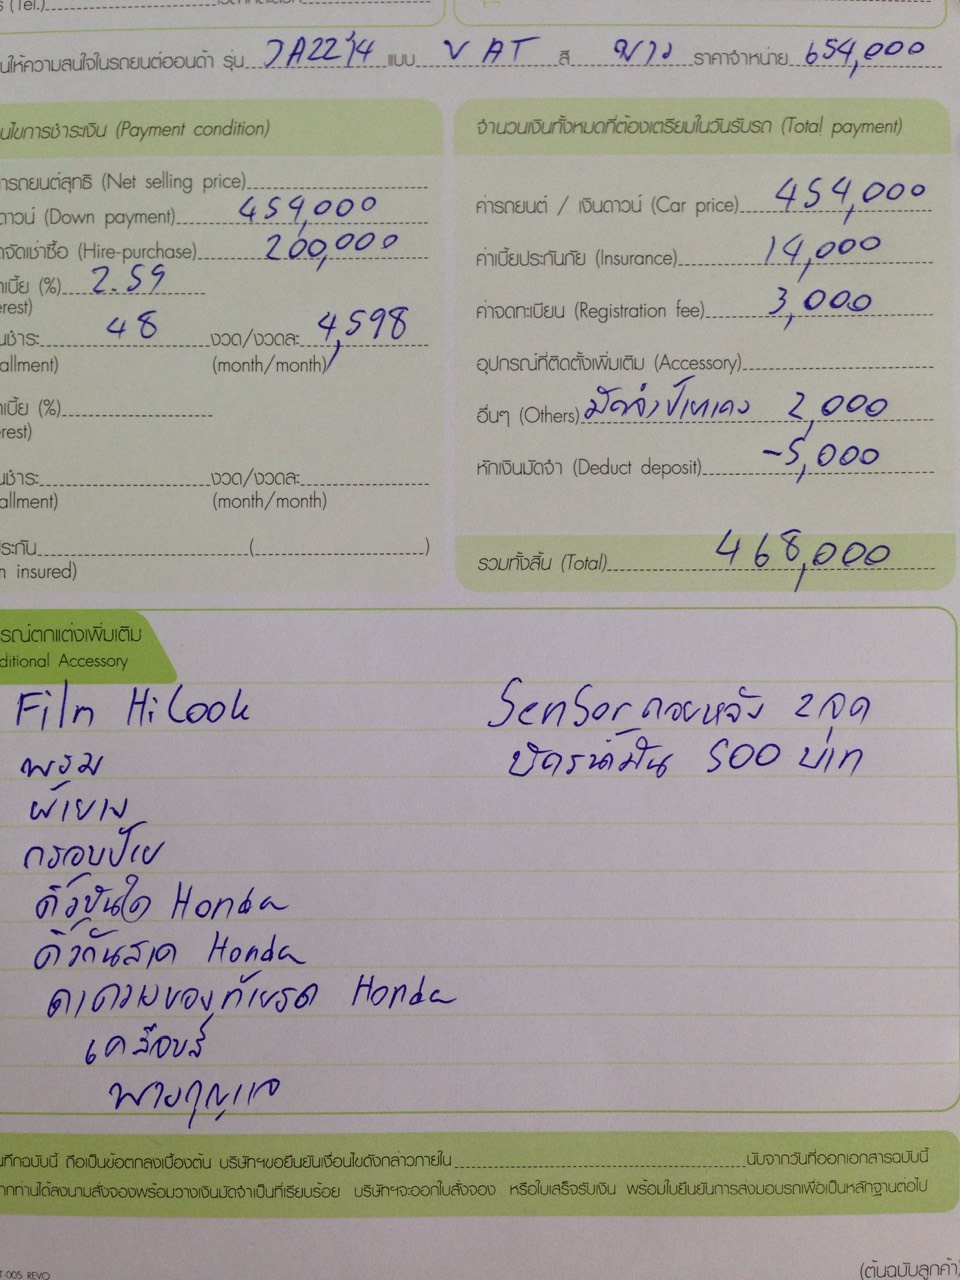 (Tel.)
นให้ความสนใจในรถยนต์ฮอนด้า รุ่น JA22'14 แบบ V AT สี ขาว ราคาจำหน่าย 654,000
นไขการชำระเงิน (Payment condition)
ารถยนต์สุทธิ (Net selling price)
ดาวน์ (Down payment) 454,000
จัดเช่าซื้อ (Hire-purchase) 200,000
เบี้ย (%) 2.59
erest)
นชำระ 48 งวด/งวดละ 4,598
allment) (month/month)
เบี้ย (%)
erest)
นชำระ งวด/งวดละ
allment) (month/month)
ระกัน ( )
n insured)
จำนวนเงินทั้งหมดที่ต้องเตรียมในวันรับรถ (Total payment)
ค่ารถยนต์ / เงินดาวน์ (Car price) 454,000
ค่าเบี้ยประกันภัย (Insurance) 14,000
ค่าจดทะเบียน (Registration fee) 3,000
อุปกรณ์ที่ติดตั้งเพิ่มเติม (Accessory)
อื่นๆ (Others) มัดจำป้ายแดง 2,000
หักเงินมัดจำ (Deduct deposit) -5,000
รวมทั้งสิ้น (Total) 468,000
รณ์ตกแต่งเพิ่มเติม
ditional Accessory
Film HiLook
พรม
ผ้ายาง
กรอบป้าย
คิ้วบันได Honda
คิ้วกันสาด Honda
ถาดวางของท้ายรถ Honda
เคลือบสี
พวงกุญแจ
Sensor ถอยหลัง 2 จุด
บัตรน้ำมัน 500 บาท
นทึกฉบับนี้ ถือเป็นข้อตกลงเบื้องต้น บริษัทฯขอยืนยันเงื่อนไขดังกล่าวภายใน นับจากวันที่ออกเอกสารฉบับนี้
ากท่านได้ลงนามสั่งจองพร้อมวางเงินมัดจำเป็นที่เรียบร้อย บริษัทฯจะออกใบสั่งจอง หรือใบเสร็จรับเงิน พร้อมใบยืนยันการส่งมอบรถเพื่อเป็นหลักฐานต่อไป
T-005 REV0
(ต้นฉบับลูกค้า)